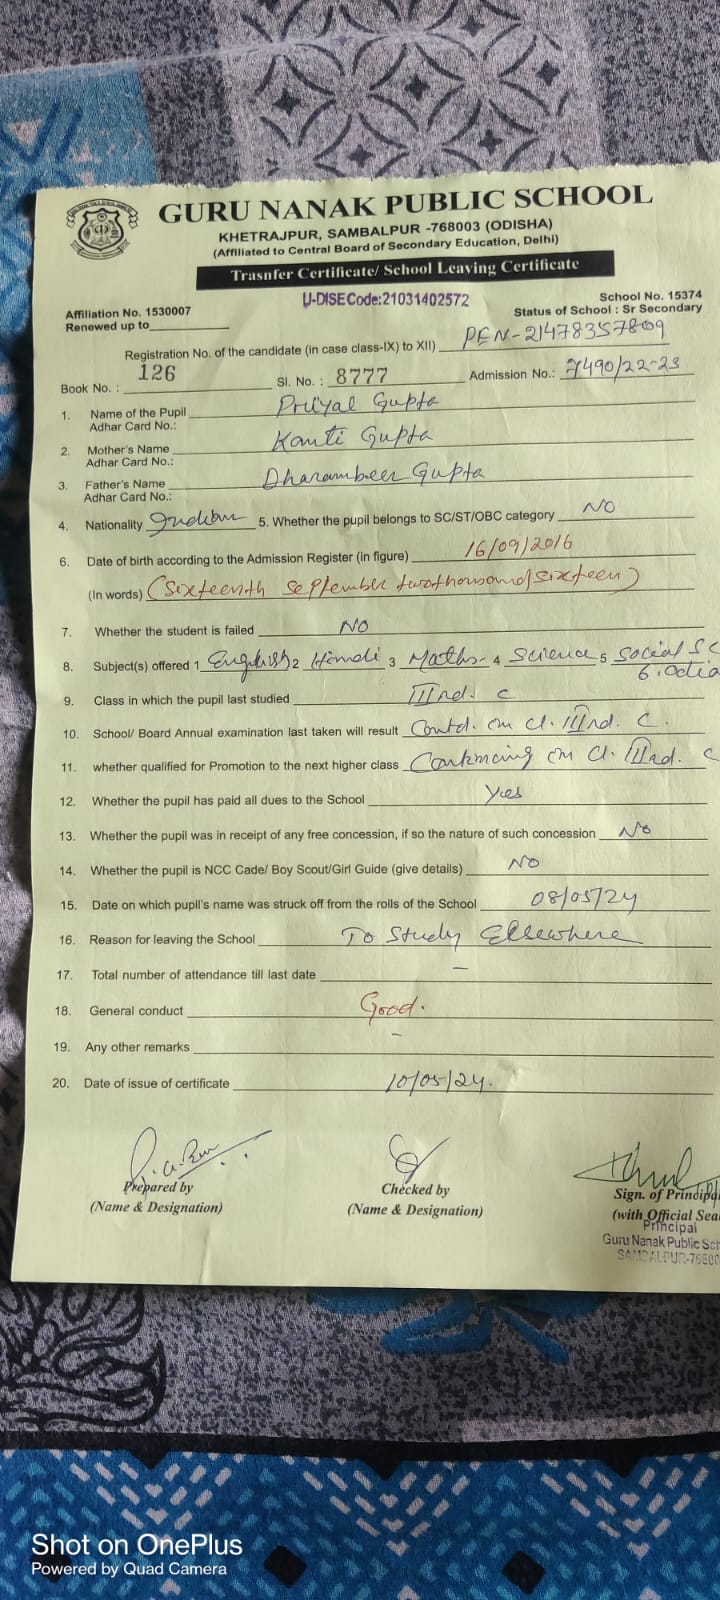 GURU NANAK PUBLIC SCHOOL
KHETRAJPUR, SAMBALPUR -768003 (ODISHA)
(Affiliated to Central Board of Secondary Education, Delhi)
Trasnfer Certificate/ School Leaving Certificate
U-DISE Code:21031402572
Affiliation No. 1530007 School No. 15374
Renewed up to Status of School : Sr Secondary
Registration No. of the candidate (in case class-IX) to XII) PEN-21478357809
Book No. : 126 Sl. No. : 8777 Admission No.: 7490/22-23
1. Name of the Pupil Priyal Gupta
Adhar Card No.:
2. Mother's Name Kanti Gupta
Adhar Card No.:
3. Father's Name Dharambeer Gupta
Adhar Card No.:
4. Nationality Indian 5. Whether the pupil belongs to SC/ST/OBC category NO
6. Date of birth according to the Admission Register (in figure) 16/09/2016
(In words) (Sixteenth September twothousand sixteen)
7. Whether the student is failed NO
8. Subject(s) offered 1 English 2 Hindi 3 Maths 4 Science 5 Social Sc
6. Odia
9. Class in which the pupil last studied IIIrd. C
10. School/ Board Annual examination last taken will result Contd. in Cl. IIIrd. C.
11. whether qualified for Promotion to the next higher class Continuing in Cl. IIIrd. C
12. Whether the pupil has paid all dues to the School Yes
13. Whether the pupil was in receipt of any free concession, if so the nature of such concession No
14. Whether the pupil is NCC Cade/ Boy Scout/Girl Guide (give details) NO
15. Date on which pupil's name was struck off from the rolls of the School 08/05/24
16. Reason for leaving the School To Study Elsewhere
17. Total number of attendance till last date –
18. General conduct Good.
19. Any other remarks –
20. Date of issue of certificate 10/05/24.
Prepared by Checked by Sign. of Principal
(Name & Designation) (Name & Designation) (with Official Sea
Principal
Guru Nanak Public Sch
SAMBALPUR-76800
Shot on OnePlus
Powered by Quad Camera